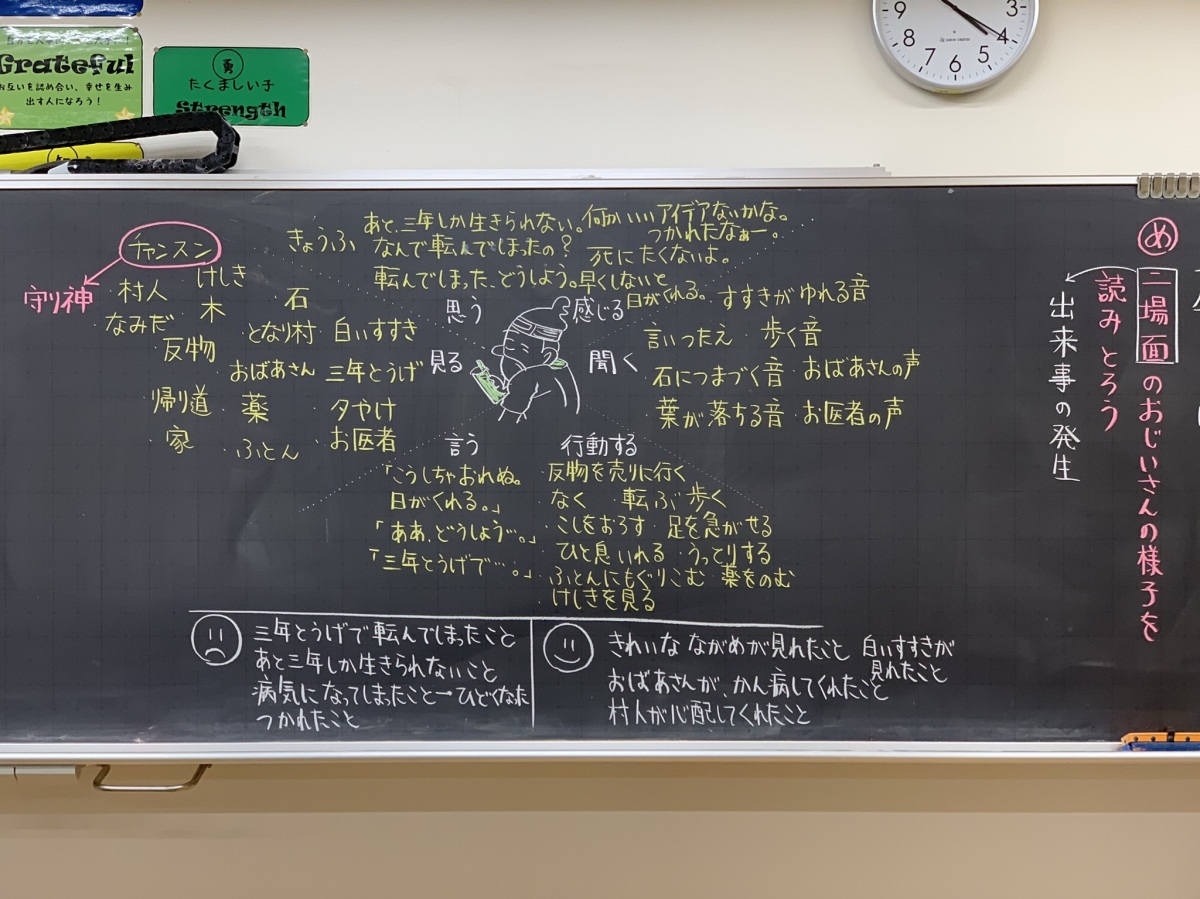 Grateful
お互いを認め合い、幸せを生み
出す人になろう！
勇
たくましい子
Strength
9
8
7
6
5
4
3
め
二場面のおじいさんの様子を
読みとろう
出来事の発生
あと、三年しか生きられない。何かいいアイデアないかな。
つかれたなぁー。
きょうふ
なんで転んでしまったの？
死にたくないよ。
転んでしまった、どうしよう。早くしないと
日がくれる。
思う
感じる
見る
聞く
言う
行動する
チャンスン
守り神
村人
けしき
・なみだ
木
・石
・反物
・となり村
・白いすすき
・おばあさん
・三年とうげ
・帰り道
・薬
・夕やけ
・家
・ふとん
・お医者
すすきがゆれる音
・言いったえ
・歩く音
・石につまづく音
・おばあさんの声
・葉が落ちる音
・お医者の声
・「こうしちゃおれぬ。
日がくれる。」
・「ああ、どうしよう…。」
・「三年とうげで…。」
・反物を売りに行く
・なく
・転ぶ
・歩く
・こしをおろす
・足を急がせる
・ひと息いれる
・うっとりする
・ふとんにもぐりこむ
・薬をのむ
・けしきを見る
三年とうげで転んでしまったこと
あと三年しか生きられないこと
病気になってしまったこと→ひどくなった
つかれたこと
きれいなながめが見れたこと
白いすすきが
見れたこと
おばあさんが、かん病してくれたこと
村人が心配してくれたこと